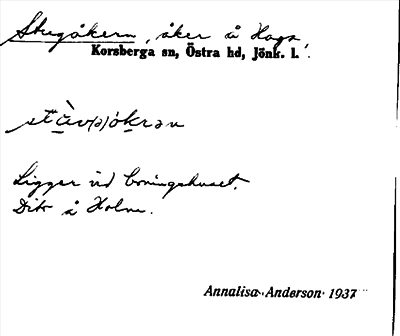 Stugåkern, åker å Haga,
Korsberga sn, Östra hd, Jönk. l.
Ligger vid boningshuset.
Dito å Holm.
Annalisa Anderson 1937